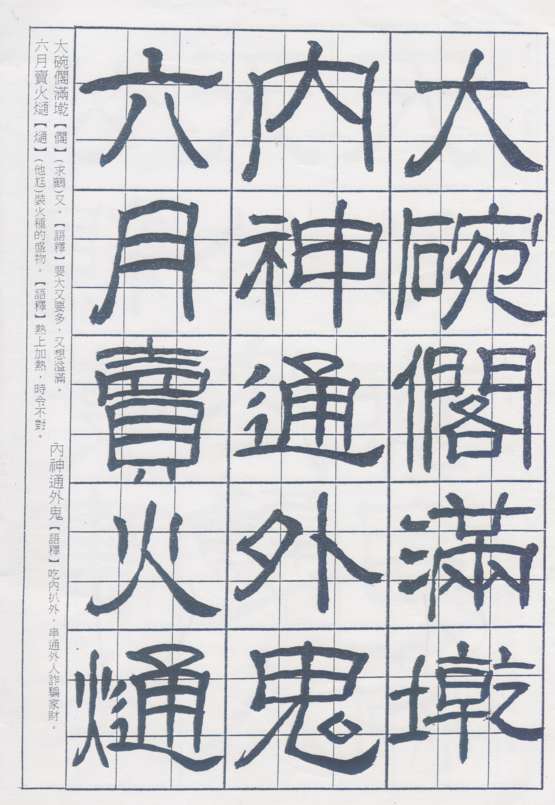 大碗𫣆滿墘
內神通外鬼
六月賣火熥
大碗𫣆滿墘【𫣆】(求鶴)又。【語釋】要大又要多，又想溢滿。 內神通外鬼【語釋】吃內扒外，串通外人詐騙家財。
六月賣火熥【熥】(他尪)裝火種的盛物。【語釋】熱上加熱，時令不對。